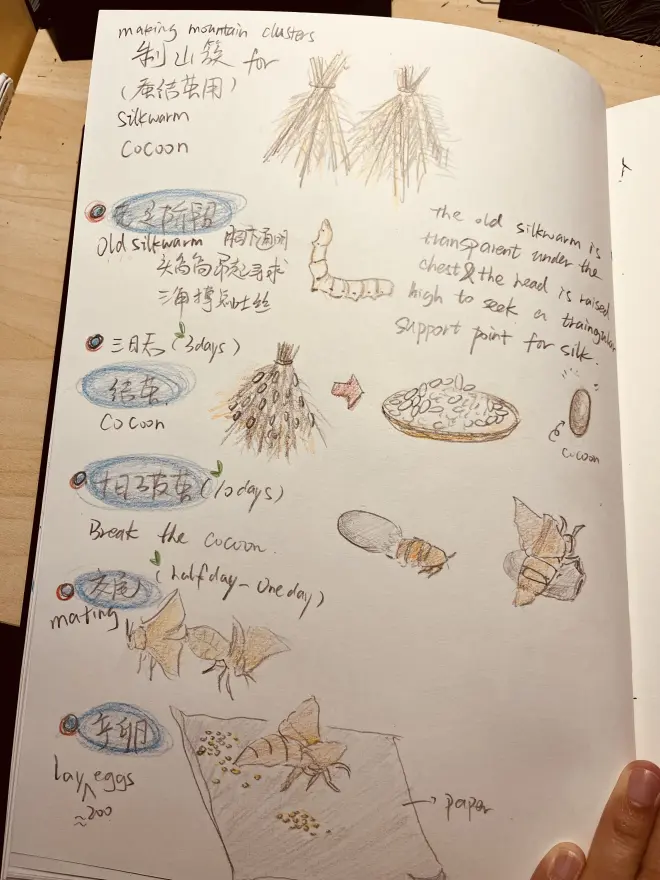 making mountain clusters
制山簇 for
(蚕结茧用)
silkwarm
cocoon
老足阶段
Old silkwarm 胸下透明
头高高昂起寻求
三角撑点吐丝
the old silkwarm is
transparent under the
chest & the head is raised
high to seek a traingular
support point for silk.
三日天 (3days)
结茧
Cocoon
cocoon
十日破茧 (10 days)
Break the cocoon.
交尾 (halfday - one day)
mating
产卵
lay eggs
≈200
→ paper